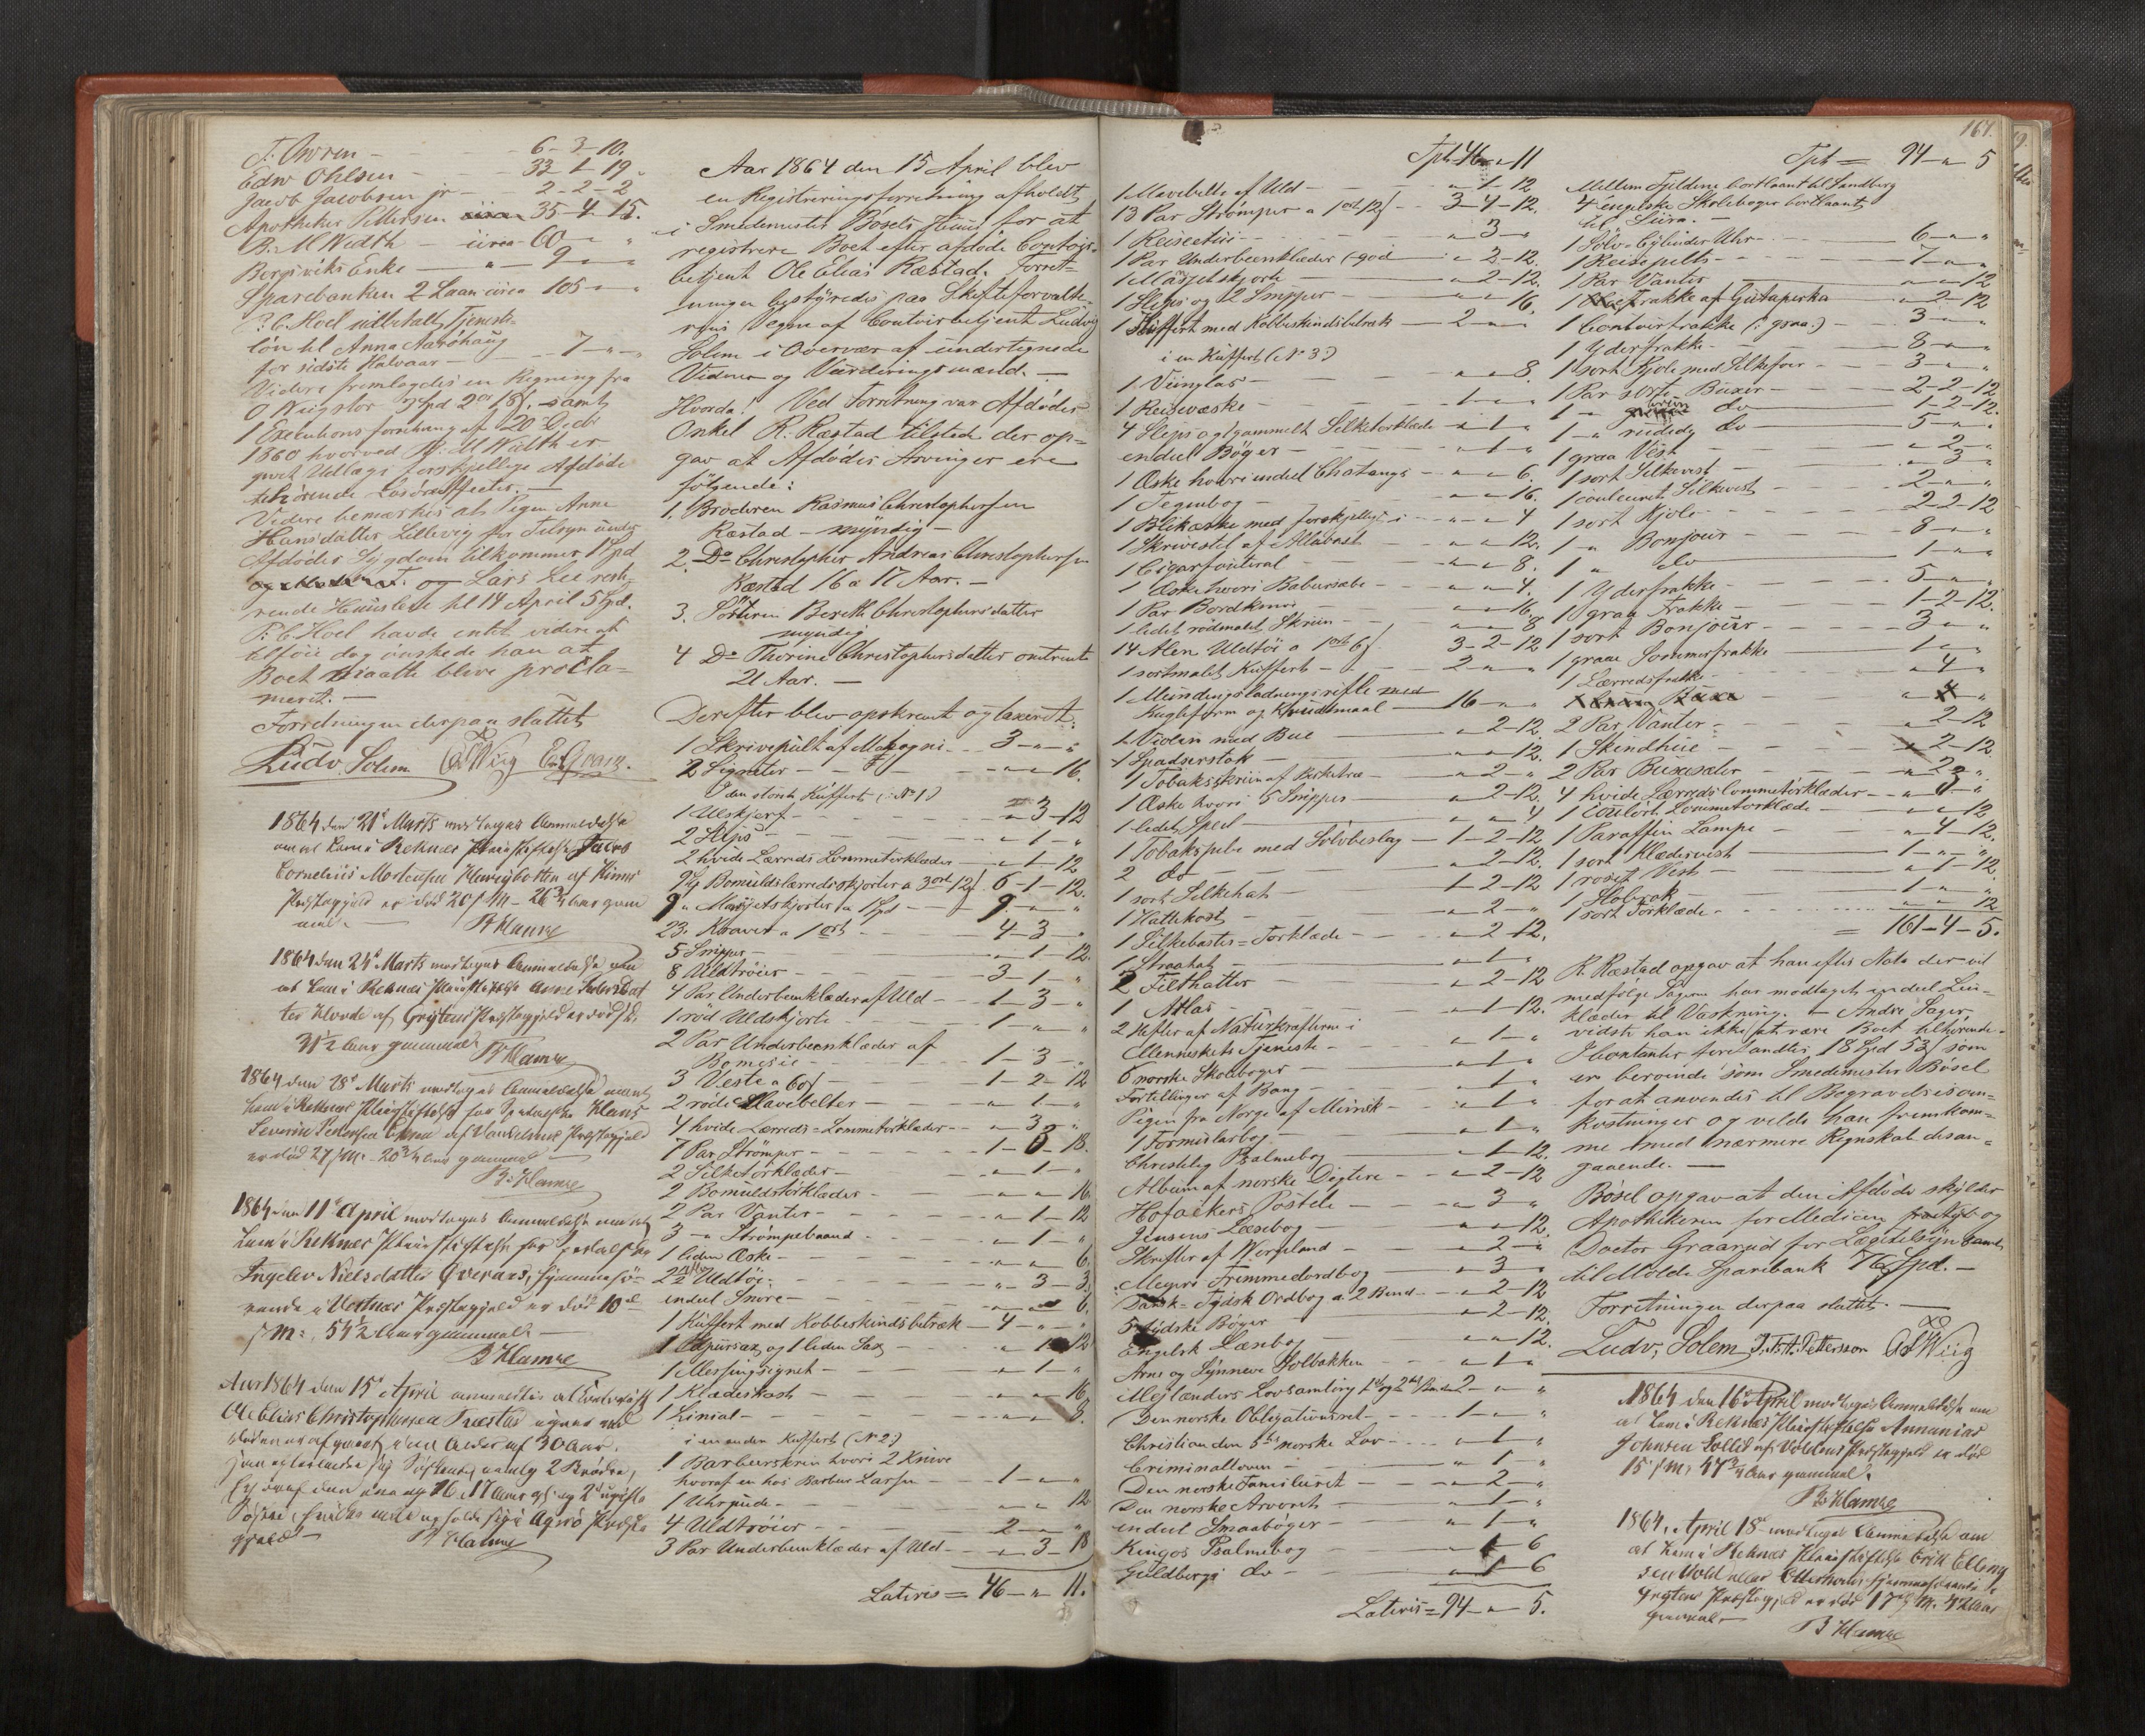 T. Owren - 6-3-10.
Edw Ohlsen - 33-1-19.
Jacob Jacobsen jr - 2-2-2
Apotheker Pettersen 35-4-15.
B: M Width - circa 60 - " "
Borgviks Enke - " - 9 - " "
Sparebanken 2 Laan circa 105 - " "
P: C. Hoel udbetalt Tjeneste-
lön til Anna Aaröhaug
for sidste Halvaar - 7 - " - "
Videre fremlagdes en Regning fra
samt
1 Executions forretning af 20 Decbr
1860 hvorved B: M Width er
gjort Udlæg i forskjellige Afdöde
tilhörende Lösöreeffecter. -
Videre bemærkes at Pigen Anne
Hansdatter Lillevig for Tilsyn under
Afdödes Sygdom tilkommer 1 Spd
og Lars Lie reste-
rende Huusleie til 14 April 5 Spd.
P: C Hoel havde intet videre at
tilföie dog önskede han at
Boet maatte blive procla-
meret. -
Forretningen derpaa sluttet
Ludv. Solem O Wiig
1864 den 21de Marts modtoges Anmeldelse
om at Lem i Reknes Pleiestiftelse Jacob
Cornelius Mortensen af Kinns
Præstegjeld er död 20 f M - 26 3/4 Aar gam
mel. - B Hamre
1864 den 24de Marts modtoges Anmeldelse om
at Lem i Reknes Pleiestiftelse Anne Pedersdat
ter Hovde af Grytens Præstegjeld er död
31 1/2 Aar gammel B Hamre
1864 den 28de Marts modtoges Anmeldelse om at
Lem i Reknes Pleiestiftelse for Spedalske Klaus
Severin af Vanelvens Præstegjeld
er död 27 f M. 20 3/4 Aar gammel
B: Hamre
1864 den 11te April modtoges Anmeldelse om at
Lem i Reknes Pleiestiftelse for Spedalske
Ingelev Nielsdatter Överaas, hjemmehö-
rende i Vestnes Præstegjeld er död 10de
f M: 54 1/2 Aar gammel. -
B Hamre
Aar 1864 den 15de April anmeldtes at Contorist
Ole Elias Christophersen Ræstad
en Alder af 30 Aar,
2 Brödre,
16 á 17 Aar og 2 ugifte
Söstre, Agerö Præste
gjeld - B Hamre
Aar 1864 den 15 April blev
en Registreringsforretning afholdt
i Smedemester Bösels Huus for at
registrere Boet efter afdöde Contoir-
betjent Ole Elias Ræstad. Forret-
ningen bestyredes paa Skifteforvalte-
rens Vegne af Contoirbetjent Ludvig
Solem i Overvær af undertegnede
Vidner og Vurderingsmænd. -
Hvorda! Ved Forretning var Afdödes
Onkel R. Ræstad tilstede der op-
gav at Afdödes Arvinger ere
fölgende:
1. Broderen Rasmus Christophersen
Ræstad - myndig -
2. Do Christopher Andreas Christophersen
Ræstad 16 a 17 Aar. -
3. Sösteren Berith Christophersdatter
myndig
4 Do Thorine Christophersdatter omtrent
21 Aar. -
Derefter blev opskrevet og taxeret:
1 Skrivepult af Mahogni - 3 - " - "
2 Signeter - " - " 16.
I den störste Kuffert (: No 1)
1 Uldskjerf - " 3 - 12
2 Slips - " 1 - "
2 hvide Lærreds Lommetörklæder - " 1 - 12
9 Bomuldslærredsskjorter a 3 ort 12 s 6 - 1 - 12.
9 " Manjetskjorter a 1 Spd - 9. - " "
23. Kraver a 1 ort - 4 - 3 - "
5 Snipper - " - 1 - 12.
8 Uldtröier - 3 - 1 - "
4 Par Underbeenklæder af Uld - 1 - 3 - "
1 röd Uldskjorte - 1 - " "
2 Par Underbeenklæder af
Bomesie - 1 - 3 - "
3 Veste a 60 s - 1 - 2 - 12
2 röde Mavebelter - " 1 - "
4 hvide Lærreds=Lommetörklæder - " 3 - "
7 Par Strömper - 1 - 0 - 18.
2 Silketörklæder - " 1 - "
2 Bomuldstörklæder - " - " 16
2 Par Vanter - " - 1 - 12
3 - " Strömpebaand - " 1 - "
1 liden Æske - " - " 6.
2 1/2 Alen Uldtöi - " - 3 - 3.
endeel Snore - " - " 6.
1 Kuffert med Kobbeskindsbetræk - 4 - " - "
1 Papirsax og 1 liden Sax - " 12
1 Messingsignet - " 1 - "
1 Klædeskost - " - " 16.
1 Linial - " - " 8.
i en anden Kuffert (No 2)
1 Barbeerskrin hvori 2 Knive
hvoraf en hos Barber Larsen - 1 - " - "
1 Uhrpude - " - " 12
4 Uldtröier - 2 - " - "
3 Par Underbeenklæder af Uld - " 3 - 18
Lateris = 46 - " 11.
Tpt 46 - " 11
1 Mavebelte af Uld - " - 1 - 12
13 Par Strömper a 1 ort 12 s - 3 - 4 - 12.
1 Reiseetui - " 3 - "
1 Par Underbeenklæder (god - " 2 - 12.
1 Manjetskjorte - " 2 - 12.
1 Slips og 2 Snipper - " " 16.
1 Kuffert med Kobbeskindsbetræk - 2 - " - "
i en Kuffert (No 3)
1 Viinglas - " " 8.
1 Reisevæske - 1 - " "
4 Slips og 1 gammelt Silketörklæde - " 1 - "
endeel Böger - " 1 - "
1 Æske hvori endeel Chatange - " - " 6.
1 Tegnebog - " - " 16.
1 Blikæske med forskjelligt i - " - " 4
1 Skrivestel af Allabast - " - " 12.
1 Cigarfouteral - " - " 8.
1 Æske hvori Barbersæbe - " - " 4.
1 Par Bordknive - " - " 16
1 lidet rödmalet Skrin - " 8
14 Alen Uldtöi a 1 ort 6 s. 3 - 2 - 12
1 sortmalet Kuffert - 2 - " "
1 Mundingsladningsrifle med
Kugleform og Krudtmaal - 16 - " - "
1 Violin med Bue - " 2 - 12.
1 Spadserstok - " - " 12.
1 Tobaksskriin af Birketræ - " 2 - "
1 Æske hvori 5 Snipper - " 2 - 12.
1 lidet Speil - " " 4
1 Tobakspibe med Sölvbeslag - 1 - 2 - 12
2 do - " 2 - 12.
1 sort Silkehat - 1 - 2 - 12
1 Hattekost - " 2 - "
1 Silkebastes=Törklæde - " 2 - 12.
1 Straahat - " 1 - "
2 Filthatter - " 2 - 12
1 Atlas - " 1 - 12.
2 Hefter af Naturkræfterne i
Menneskets Tjeneste - " 1 - "
6 norske Skoleböger - " 1 - "
Fortællinger af Bang - " 1 - "
Pigen fra Norge af Minsk - " 1 - "
1 Formularbog - " 1 - "
Christelig Psalmebog - " 1 - 12.
Album af norske Digtere - " 2 - 12
Hofackers Postille - " 3 - "
Jensens Læsebog - " - " 12.
Skrifter af Wergeland - " 2 - "
Meyers Fremmedordbog - " 3 - "
Dansk=Tydsk Ordbog a 2 Bind - " 2 - 12
5 tydske Böger - " 2 - 12.
Engelsk Læsebog - " - " 12.
Arne og Synneve Solbakken - " 1 - "
Mejlænders Lovsamling 1ste og 2det Bind 2 - " "
Den norske Obligationsret - 1 - " "
Christian den 5tes norske Lov - " 1 - "
Criminalloven - " 1 - "
Den norske Familieret - " 2 - "
Den norske Arveret - " 1 - "
endeel Smaaböger - " 1 - "
Kingos Psalmebog - " 1 6
Guldbergs do - " 1 6
Lateris = 94 - " 5.
167.
Tpt = 94 - " 5
Mellem Fjeldene bortlaant til Sandberg
4 engelske Skoleböger bortlaant
til -
1 Sölv=Cylinder Uhr - 6 - " "
1 Reisepelts - 7 - " "
1 Par Vanter - " " 12
1 Frakke af Gutaperka - " 2 - 12
1 Contoirfrakke (: graa:) 3 - " "
1 Yderfrakke - 8 - " "
1 sort Kjole med Silkefoer - 3 - " "
1 Par sorte Buxer - 2 - 2 - 12
1 - " do 1 - 2 - 12.
1 - " rudede do - 5 - " "
1 graa Vest - " 2 - "
1 sort Silkevest - " 3 "
1 couleuret Silkevest - 2 - " "
1 sort Kjole - 2 - 2 - 12
1 - " Bonjour - 8 - " "
1 " do - 1 - " "
1 Yderfrakke - 5 - " "
1 graa Frakke - 1 - 2 - 12.
1 sort Bonjour - 3 - " "
1 graa Sommerfrakke - 1 - " "
1 Lærredsfrakke - " 4 - "
2 Par Vanter - " 2 - 12
1 Skindhue - " 2 - 12
2 Par Buxeseler - " 2 - "
4 hvide Lærreds Lommetörklæder - "
1 coulört Lommetörklæde - " " 12
1 Paraffin Lampe - " 4 - 12.
1 sort Klædesvest - 1 - " "
1 roset Vest - " 1 - 12.
1 Slobrok - 1 - " "
1 sort Törklæde - " " 12
= 161 - 4 - 5.
R. Ræstad opgav at han efter Nota der vil
medfölge Sagen har modtaget endeel Lin-
klæder til Vaskning. - Andre Sager
vidste han ikke at være Boet tilhörende.
I Contanter forefandtes 18 Spd 53 s som
er beroende hos Smedemester Bösel
for at anvendes til Begravelsesom-
kostninger og vilde han fremkom-
me med nærmere Regnskab desan-
gaaende. -
Bösel opgav at den Afdöde skylder
Apothekeren for Medicin og
Doctor Graarud for Lægetilsyn samt
til Molde Sparebank 76 Spd. -
Forretningen derpaa sluttet. -
Ludv. Solem J. Fr. H. Pettersson O Wiig
1864 den 16de April modtoges Anmeldelse om
at Lem i Reknes Pleiestiftelse Annanias
Johnsen af Voldens Præstegjeld er död
15 f M, 47 3/4 Aar gammel.
B Hamre
1864, April 18de modtoges Anmeldelse om
at Lem i Reknes Pleiestiftelse Erik Elling
sen Vold eller hjemmehörende i
Grytens Præstegjeld er död 17de f M. Aar
gammel - B Hamre